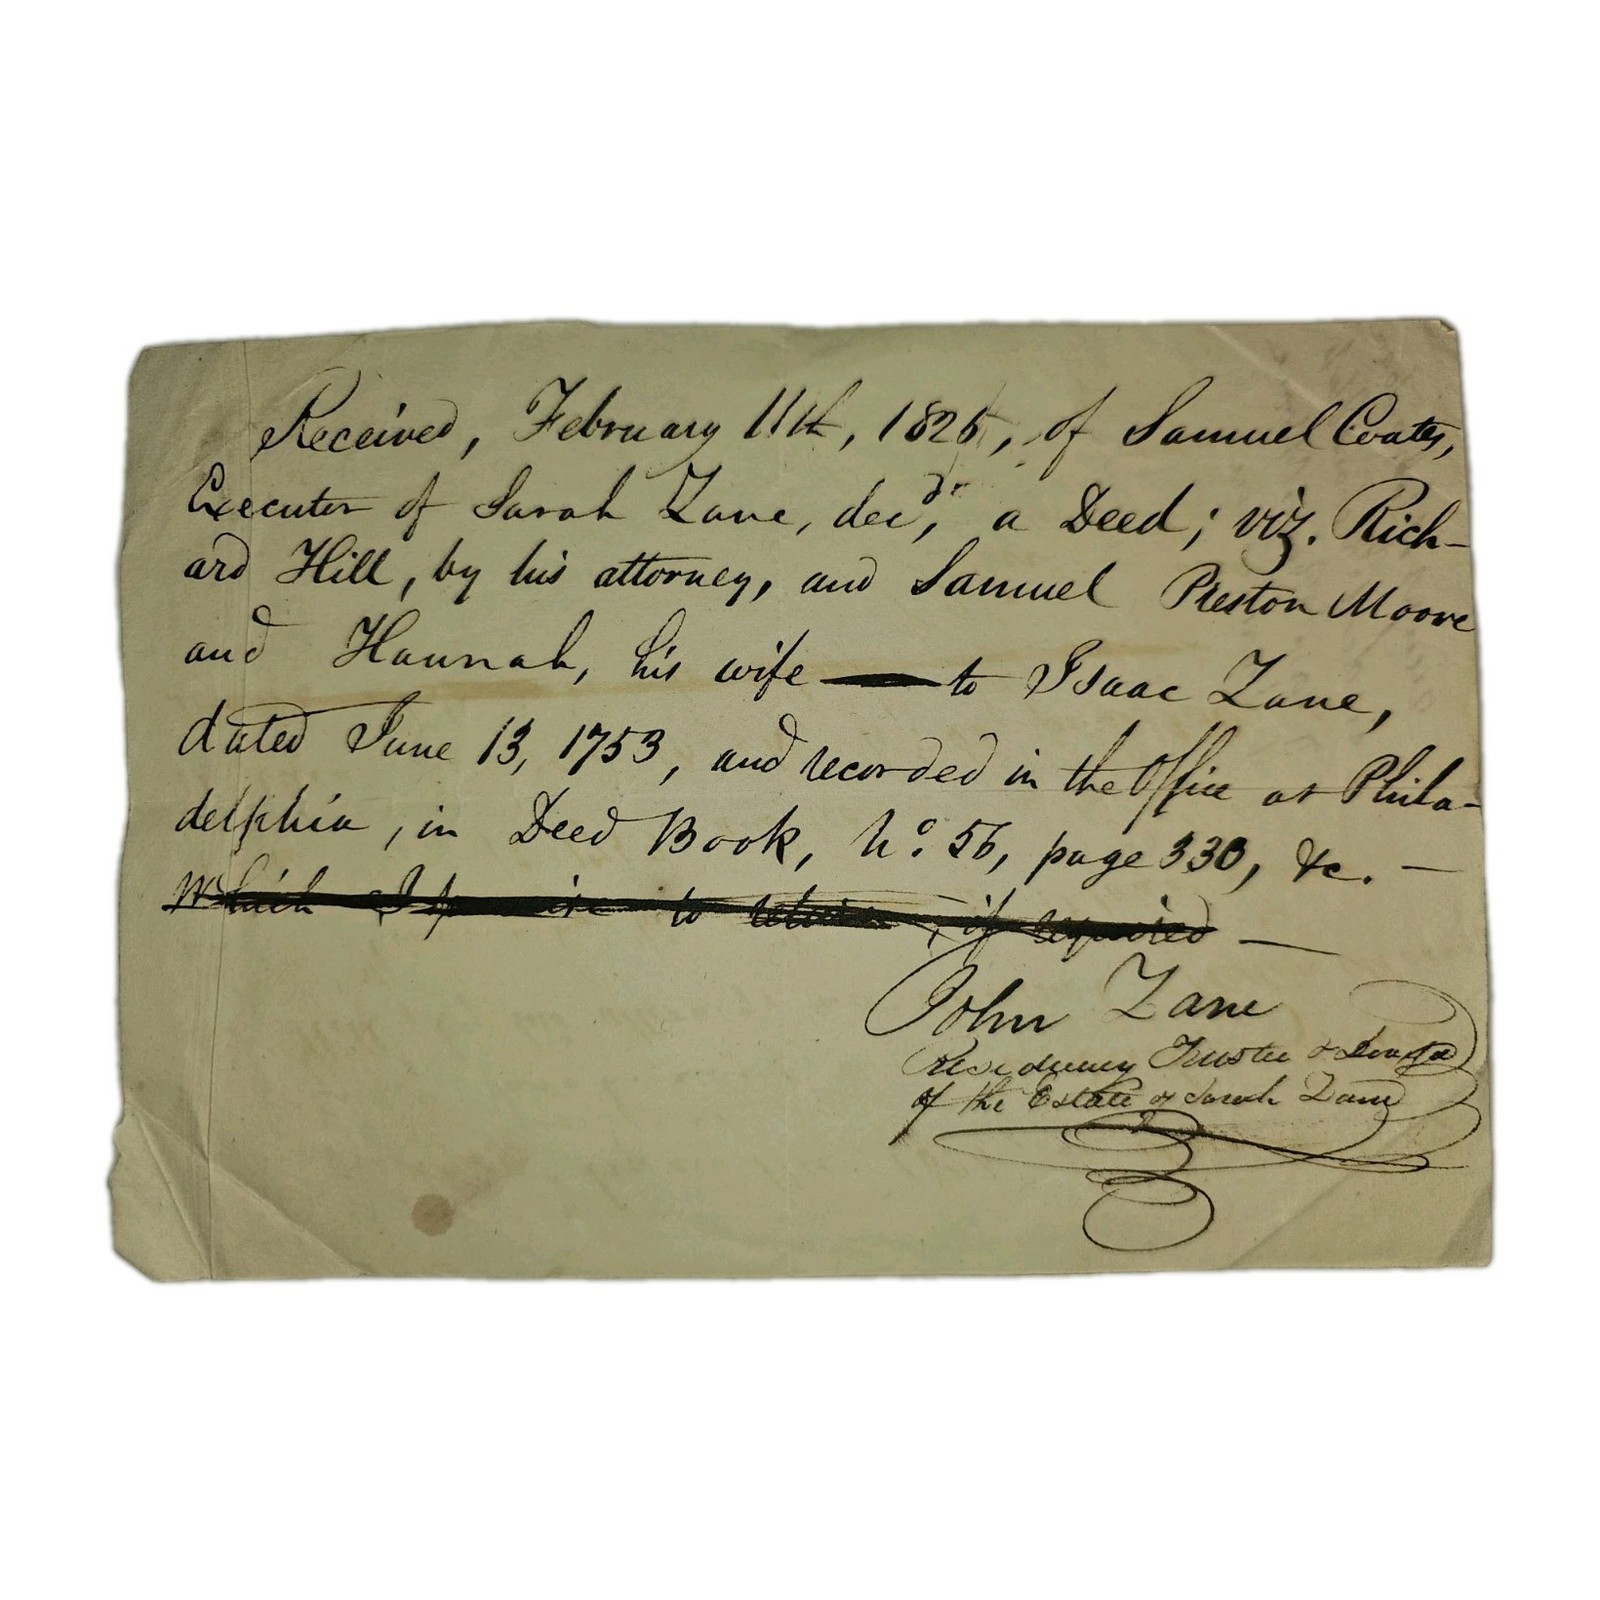 Received, February 11th, 1825, of Samuel Coates,
Executor of Sarah Zane, decd, a Deed; viz. Rich-
ard Hill, by his attorney, and Samuel Preston Moore
and Hannah, his wife — to Isaac Zane,
dated June 13, 1753, and recorded in the Office at Phila-
delphia, in Deed Book, No. 56, page 330, &c. —
which I to return, if required —
John Zane
Residuary Trustee &
of the Estate of Sarah Zane